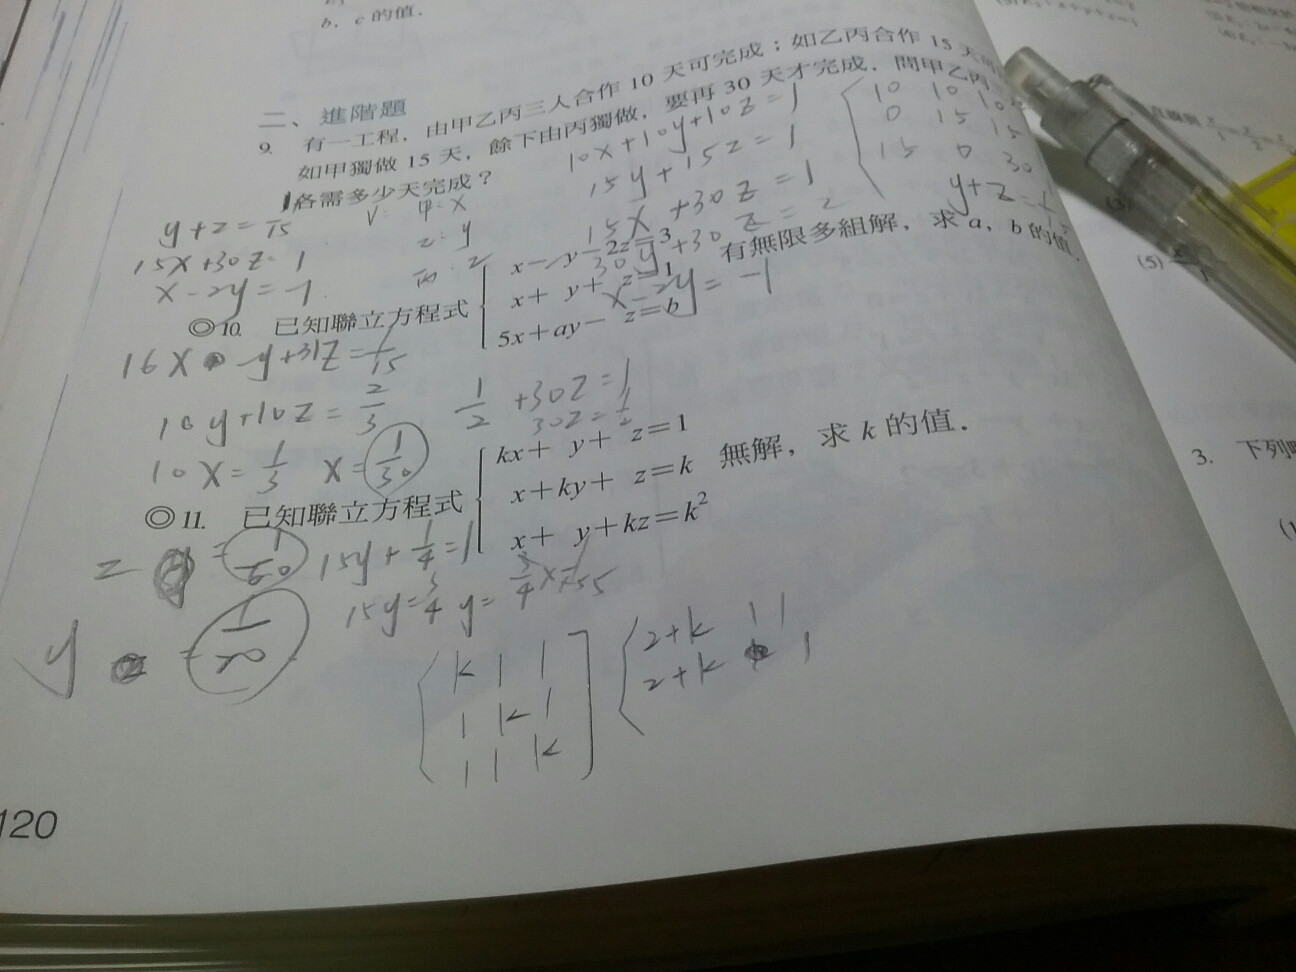 b, c 的值.
二、進階題
9. 有一工程, 由甲乙丙三人合作 10 天可完成；如乙丙合作 15 天
如甲獨做 15 天, 餘下由丙獨做, 要再 30 天才完成. 問甲乙丙
各需多少天完成？
10x+10y+10z=1
15y+15z=1
15x+30z=1
30y+30z=2
x-2y=-1
10 10 10
0 15 15
15 0 30
y+z=
y+z=1/15
15x+30z=1
x-2y=-1
甲:x
乙:y
丙:z
◎10. 已知聯立方程式
x- y-2z=3
x+ y+ z=1
5x+ay- z=b
有無限多組解, 求 a, b 的值.
16x y+31z=1/15
10y+10z=2/3
10x=1/3 x=1/30
1/2 +30z=1
30z=1/2
◎11. 已知聯立方程式
kx+ y+ z=1
x+ky+ z=k
x+ y+kz=k²
無解, 求 k 的值.
z =1/60 15y+1/4=1
15y=3/4 y=
y =1/20
k 1 1
1 k 1
1 1 k
2+k 1 1
2+k 1
120
3. 下列
(5)